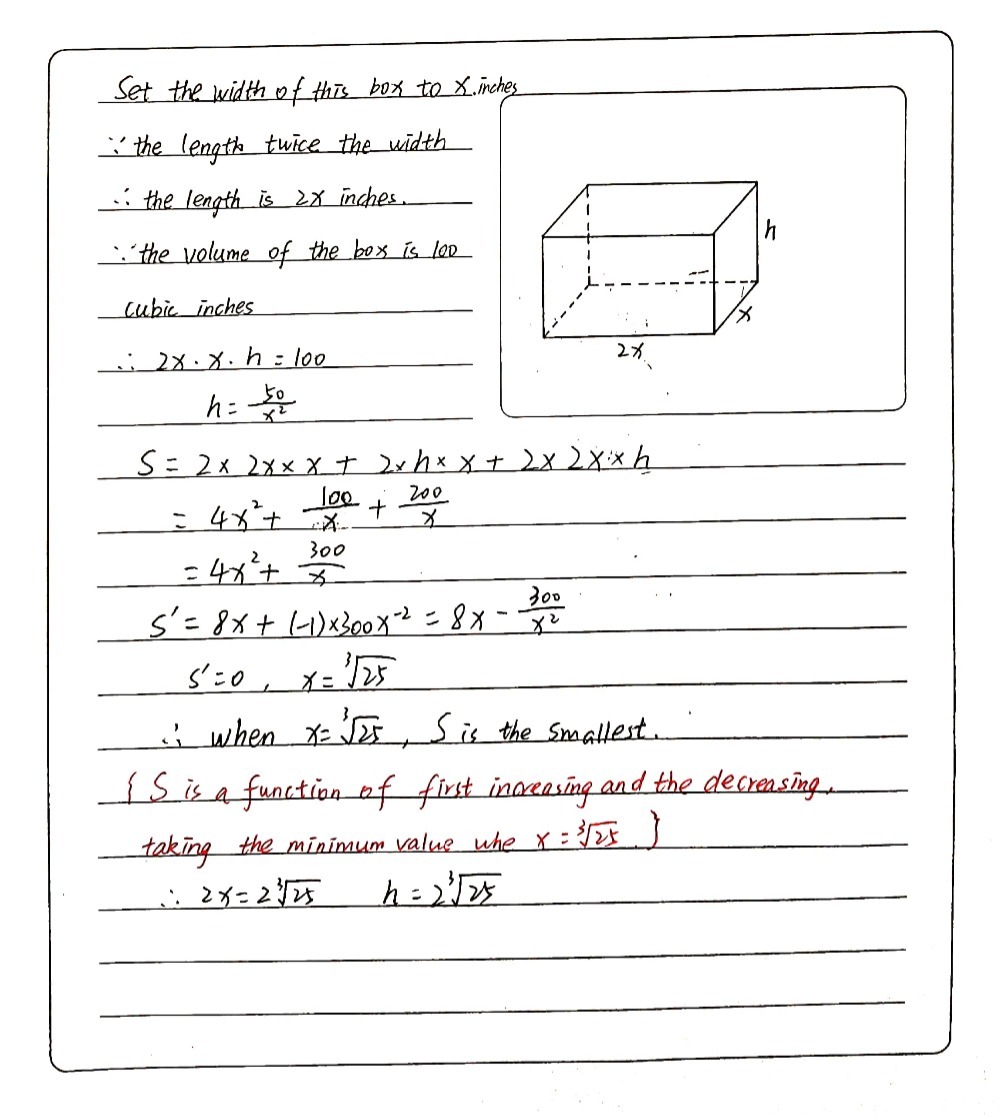 Set the width of this box to x.inches
∵ the length twice the width
∴ the length is 2x inches.
∵ the volume of the box is 100
cubic inches
∴ 2x·x·h=100
h=50/x²
h
x
2x
S= 2× 2x× x + 2×h× x + 2× 2x× h
= 4x²+ 100/x + 200/x
= 4x²+ 300/x
S′= 8x+ (-1)×300x⁻² = 8x - 300/x²
S′=0 , x=∛25
∴ when x=∛25 , S is the smallest.
{ S is a function of first increasing and the decreasing,
taking the minimum value whe x = ∛25 }
∴ 2x=2∛25 h=2∛25